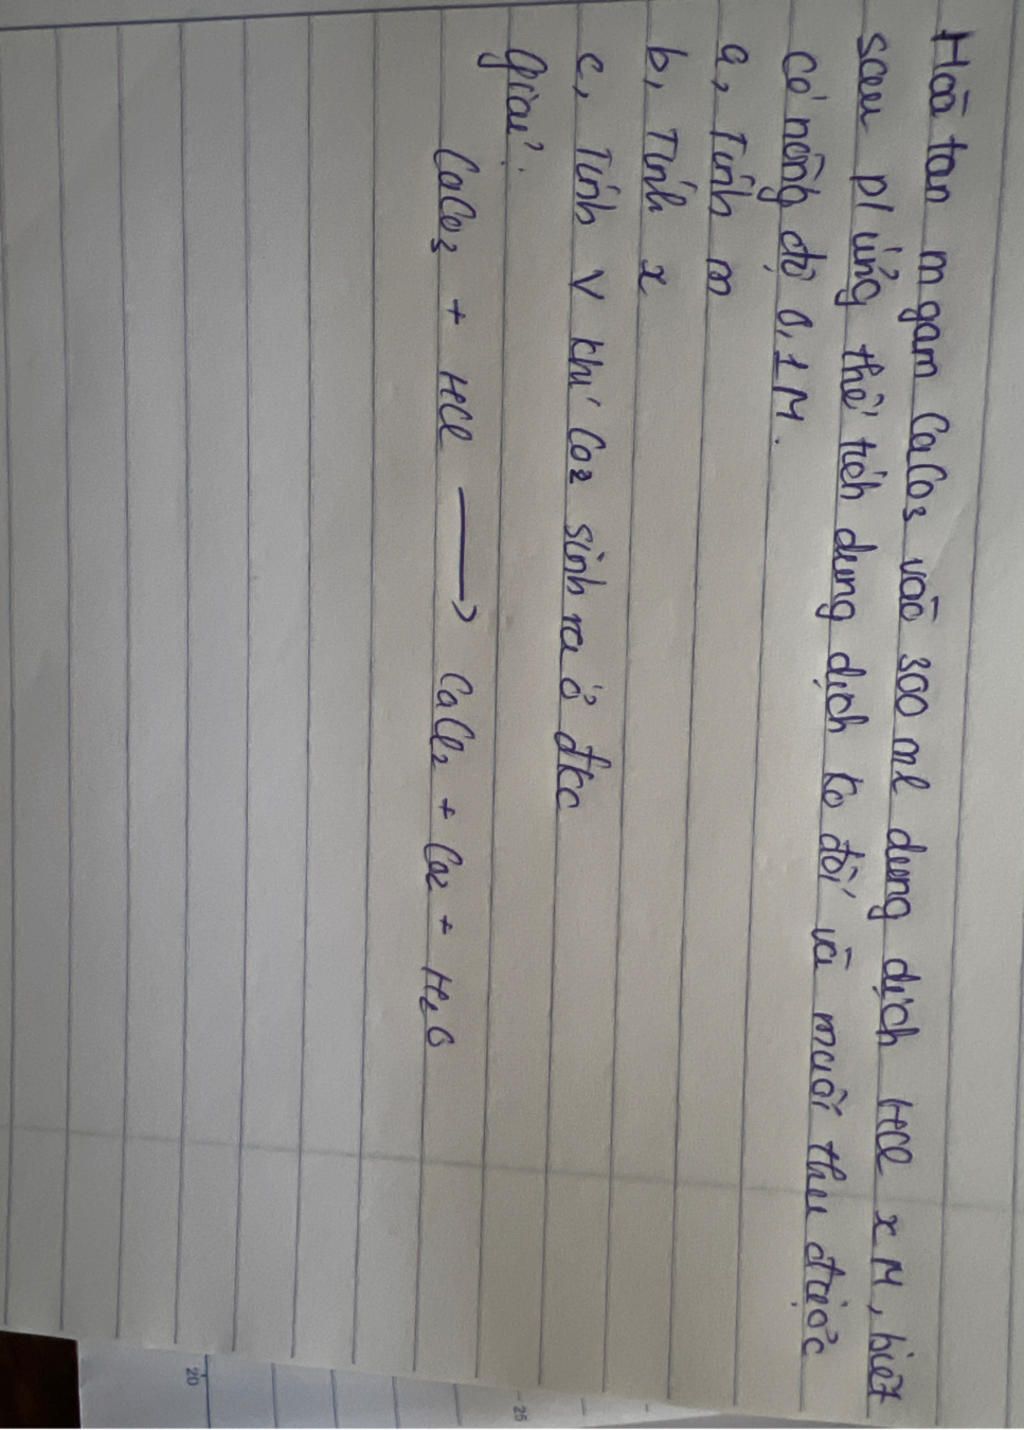 Hoà tan m gam CaCO3 vào 300 ml dung dịch HCl x M, biết
sau p/ứng thể tích dung dịch ko đổi và muối thu được
có nồng độ 0,1M.
a, Tính m
b, Tính x
c, Tính V khí CO2 sinh ra ở đkc
Giải:
CaCO3 + HCl → CaCl2 + CO2 + H2O
20
25